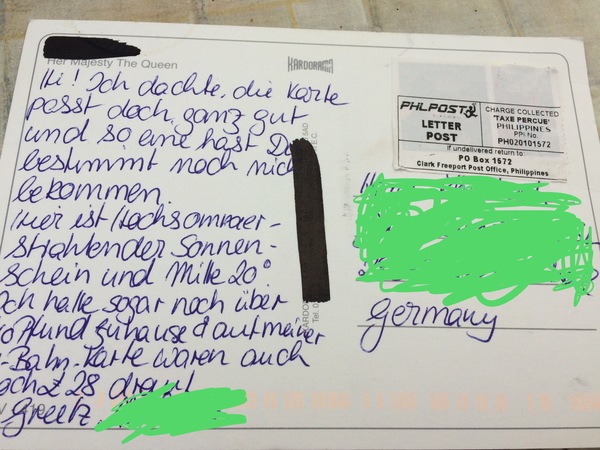 Her Majesty The Queen
KARDORAMA
Hi! Ich dachte, die Karte
passt doch ganz gut
und so eine hast Du
bestimmt noch nich
bekommen.
Hier ist Hochsommer-
strahlender Sonnen-
schein und Mitte 20°
Ich hatte sogar noch über
Pfund zuhause & auf meiner
-Bahn-Karte waren auch
noch £ 28 drauf!
Greetz
PHLPOST
LETTER
POST
CHARGE COLLECTED
'TAXE PERCUE'
PHILIPPINES
PPI No.
PH020101572
If undelivered return to
PO Box 1572
Clark Freeport Post Office, Philippines
Germany